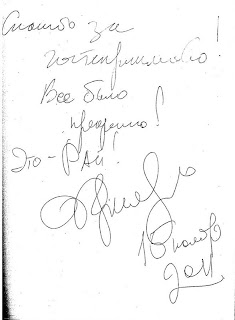 Спасибо за
гостеприимство!
Все было
прекрасно!
Это - Рай!
18 ноября
2011